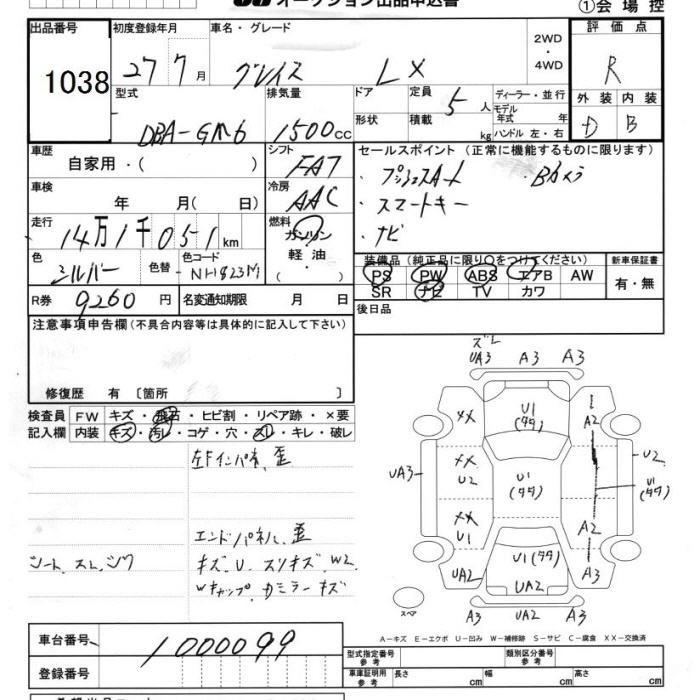 オークション出品申込書
①会場控
出品番号 初度登録年月 車名・グレード 評価点
1038 27 7月 グレイス LX 2WD・4WD R
型式 排気量 ドア 定員 5人 ディーラー・並行 外装 内装
DBA-GM6 1500cc 形状 積載 kg モデル年式 年 ハンドル 左・右 D B
車歴 自家用・( ) シフト FAT セールスポイント (正常に機能するものに限ります)
プッシュスタート ・Bカメラ
・スマートキー
・ナビ
車検 年 月( 日) 冷房 AAC
走行 14万1千051km 燃料 ガソリン 軽油 ( ・ )
色 シルバー 色替 色コード NH823M
装備品 (純正品に限り○をつけてください) 新車保証書
PS PW ABS エアB AW 有・無
SR ナビ TV カワ
R券 9260円 名変通知期限 月 日 後日品
注意事項申告欄 (不具合内容等は具体的に記入して下さい)
修復歴 有 〔箇所 〕
検査員 FW キズ・飛石・ヒビ割・リペア跡・×要
記入欄 内装 キズ・汚レ・コゲ・穴・スレ・キレ・破レ
左Fインパネ、歪
エンドパネル、歪
シート、スレ、シワ キズ、U、スリキズ W2
Wキャップ、カミラーキズ
ズレ
UA3 A3 A3
XX U1(タタ) A2
UA3 XX U2 U1(タタ) U2 U1(タタ)
XX U1 U1(タタ) A2
UA2 UA2 A3
スペア A3 UA2 A3
A-キズ E-エクボ U-凹み W-補修跡 S-サビ C-腐食 XX-交換済
車台番号 1000099
登録番号
型式指定番号 参考 類別区分番号 参考
車庫証明用 参考 長さ cm 幅 cm 高さ cm